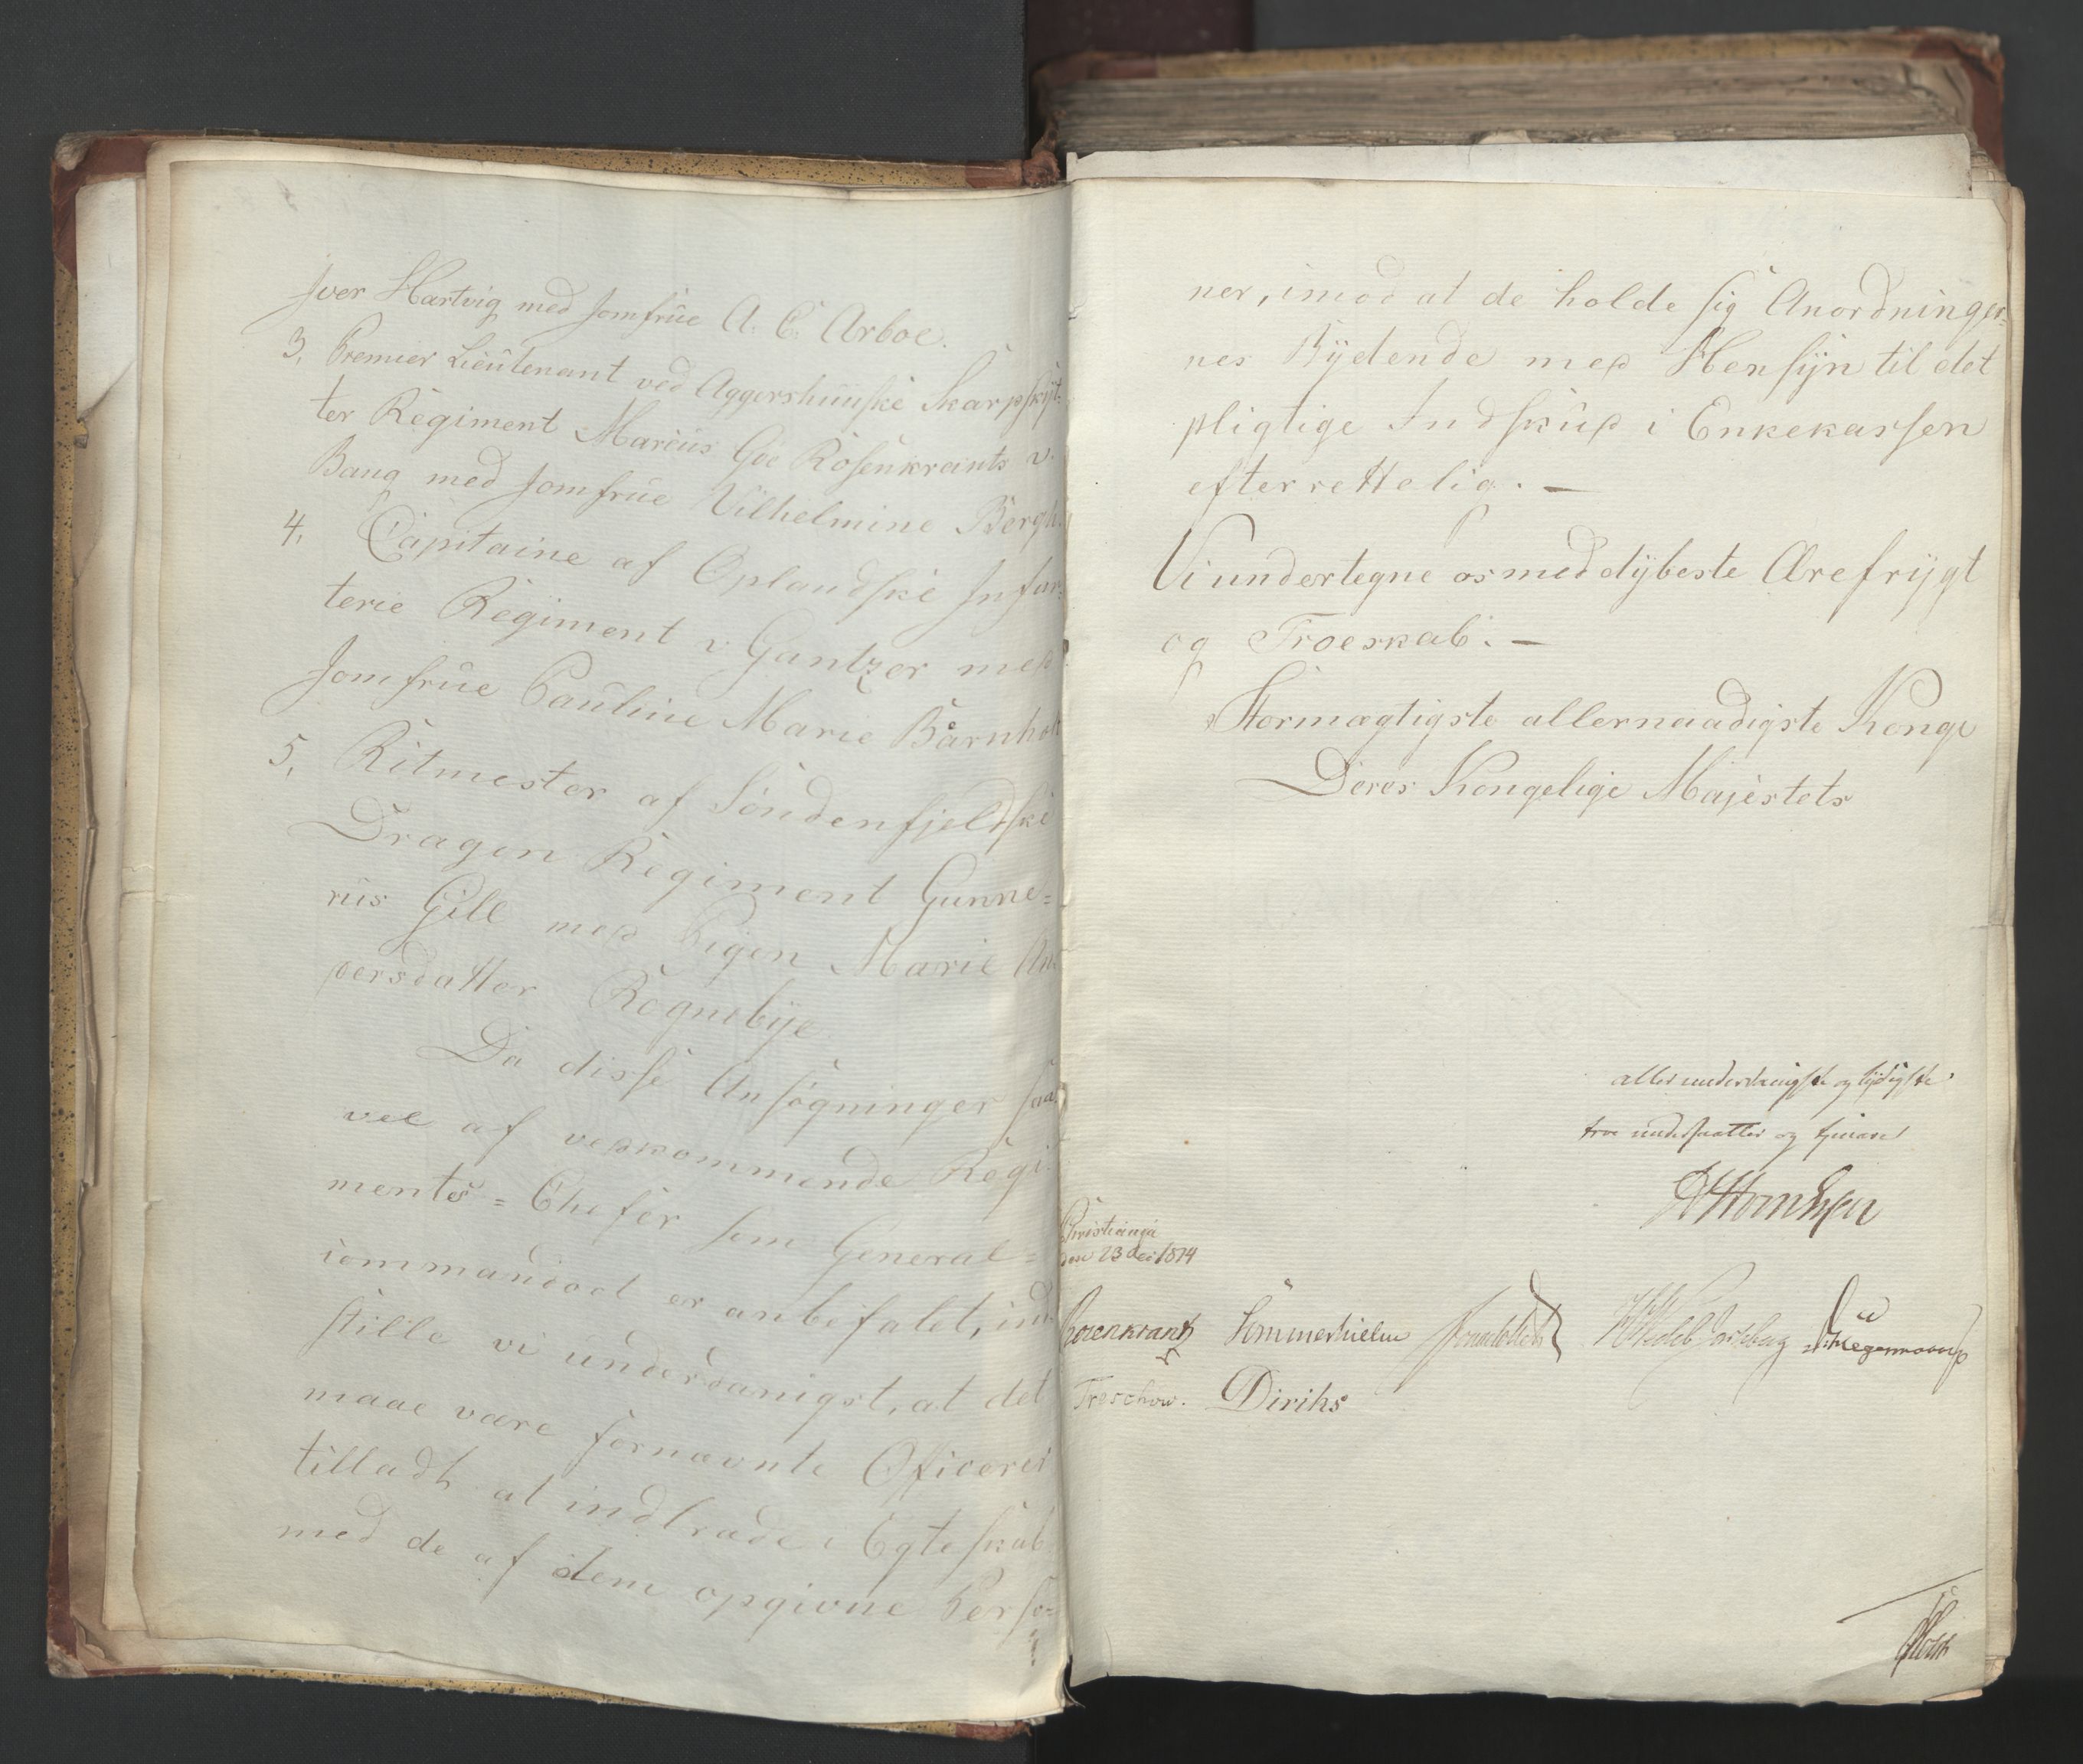 Iver Hartvig med Jomfrue A. C. Arboe.
3, Premier Lieutenant ved Aggershuuske Skarpskyt-
ter Regiment Marcus Göe Rosenkrants v.
Bang med Jomfrue Vilhelmine Bergh.
4, Capitaine af Oplandske Infan-
terie Regiment v Gantzer med
Jomfrue Pauline Marie Barnholt
5, Ritmester af Söndenfjeldske
Dragon Regiment Gunne=
rus Gill med Pigen Marie An-
dersdatter Rognebye.
Da disse Ansögninger saa-
vel af vedkommende Regi-
ments=Chefer som General=
commandoet er anbefalet, ind-
stille vi underdanigst, at det
maae være fornævnte Officerer
tilladt at indtræde i Egteskab
med de af dem opgivne Perso=
ner, imod at de holde sig Anordninger=
nes Bydende med Hensyn til det
pligtige Indskud i Enkekassen
efterrettelig. —
Vi undertegne os med dybeste Ærefrygt
og Troeskab. —
Stormægtigste allernaadigste Konge
Deres Kongelige Majestets
allerunderdanigste og lydigste
troe undersaatter og tjenere
Christiania
den 23 Dec 1814
Rosenkrantz Sommerhielm HWedel Jarlsberg
Treschow. Diriks